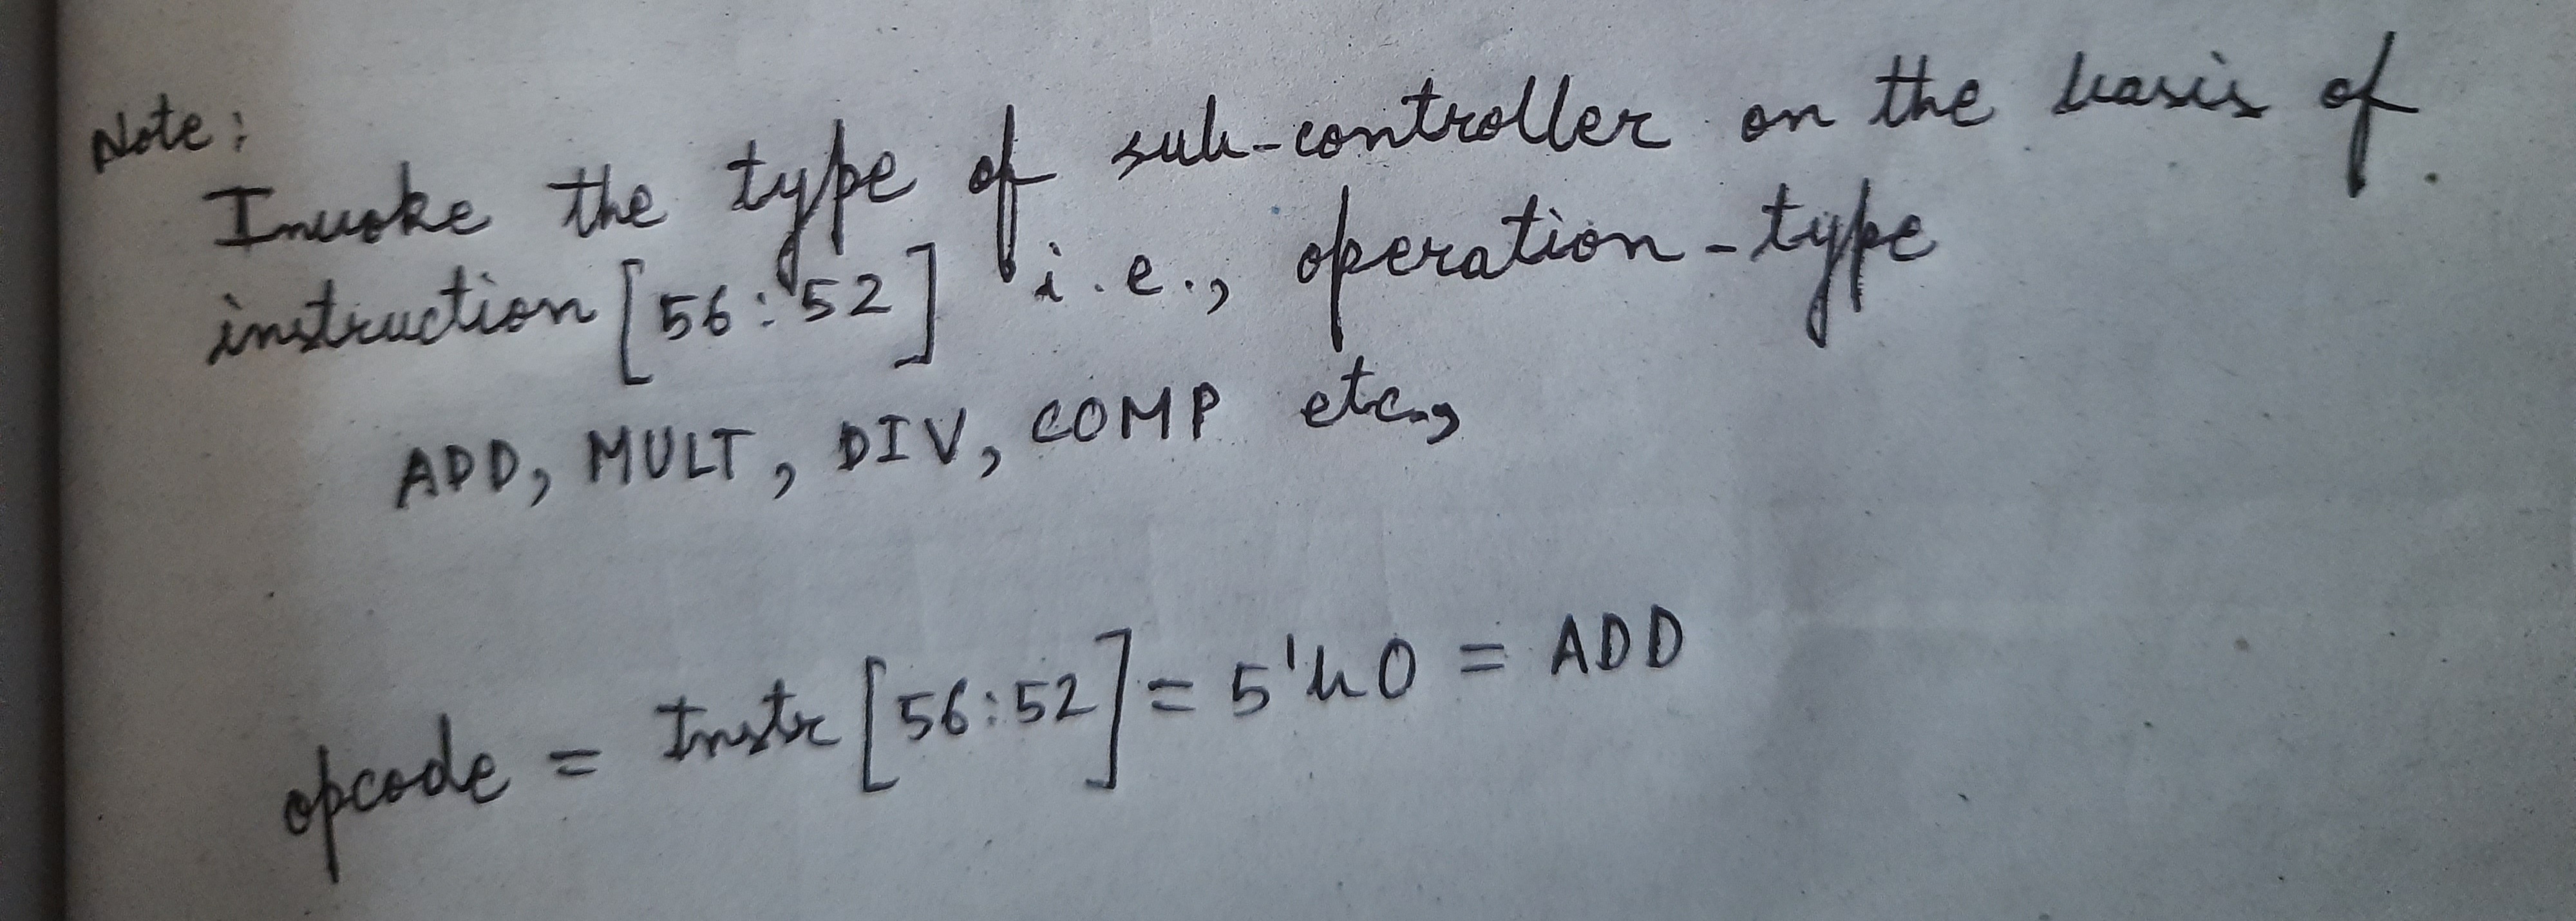 Note:
Invoke the type of sub-controller on the basis of
instruction [56:52] i.e., operation-type
ADD, MULT, DIV, COMP etc.,
opcode = Instr [56:52] = 5'h0 = ADD